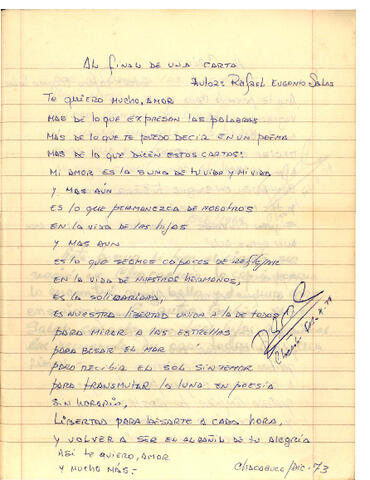 AL FINAL DE UNA CARTA
AUTOR: RAFAEL EUGENIO SALAS
TE QUIERO MUCHO, AMOR
MAS DE LO QUE EXPRESAN LAS PALABRAS
MAS DE LO QUE TE PUEDO DECIR EN UN POEMA
MAS DE LO QUE DICEN ESTAS CARTAS:
MI AMOR ES LA SUMA DE TU VIDA Y MI VIDA
Y MAS AÚN
ES LO QUE PERMANEZCA DE NOSOTROS
EN LA VIDA DE LAS HIJAS
Y MAS AUN
ES LO QUE SEAMOS CAPACES DE REFLEJAR
EN LA VIDA DE NUESTROS HERMANOS,
ES LA SOLIDARIDAD,
ES NUESTRA LIBERTAD UNIDA A LA DE TODOS
PARA MIRAR A LAS ESTRELLAS
PARA BESAR EL MAR
PARA RECIBIR EL SOL SIN TEMOR
PARA TRANSMUTAR LA LUNA EN POESIA
SIN HORARIO,
LIBERTAD PARA BESARTE A CADA HORA,
Y VOLVER A SER EL ALBAÑIL DE TU ALEGRIA
ASI TE QUIERO, AMOR
Y MUCHO MÁS.-
CHACABUCO/DIC. 73